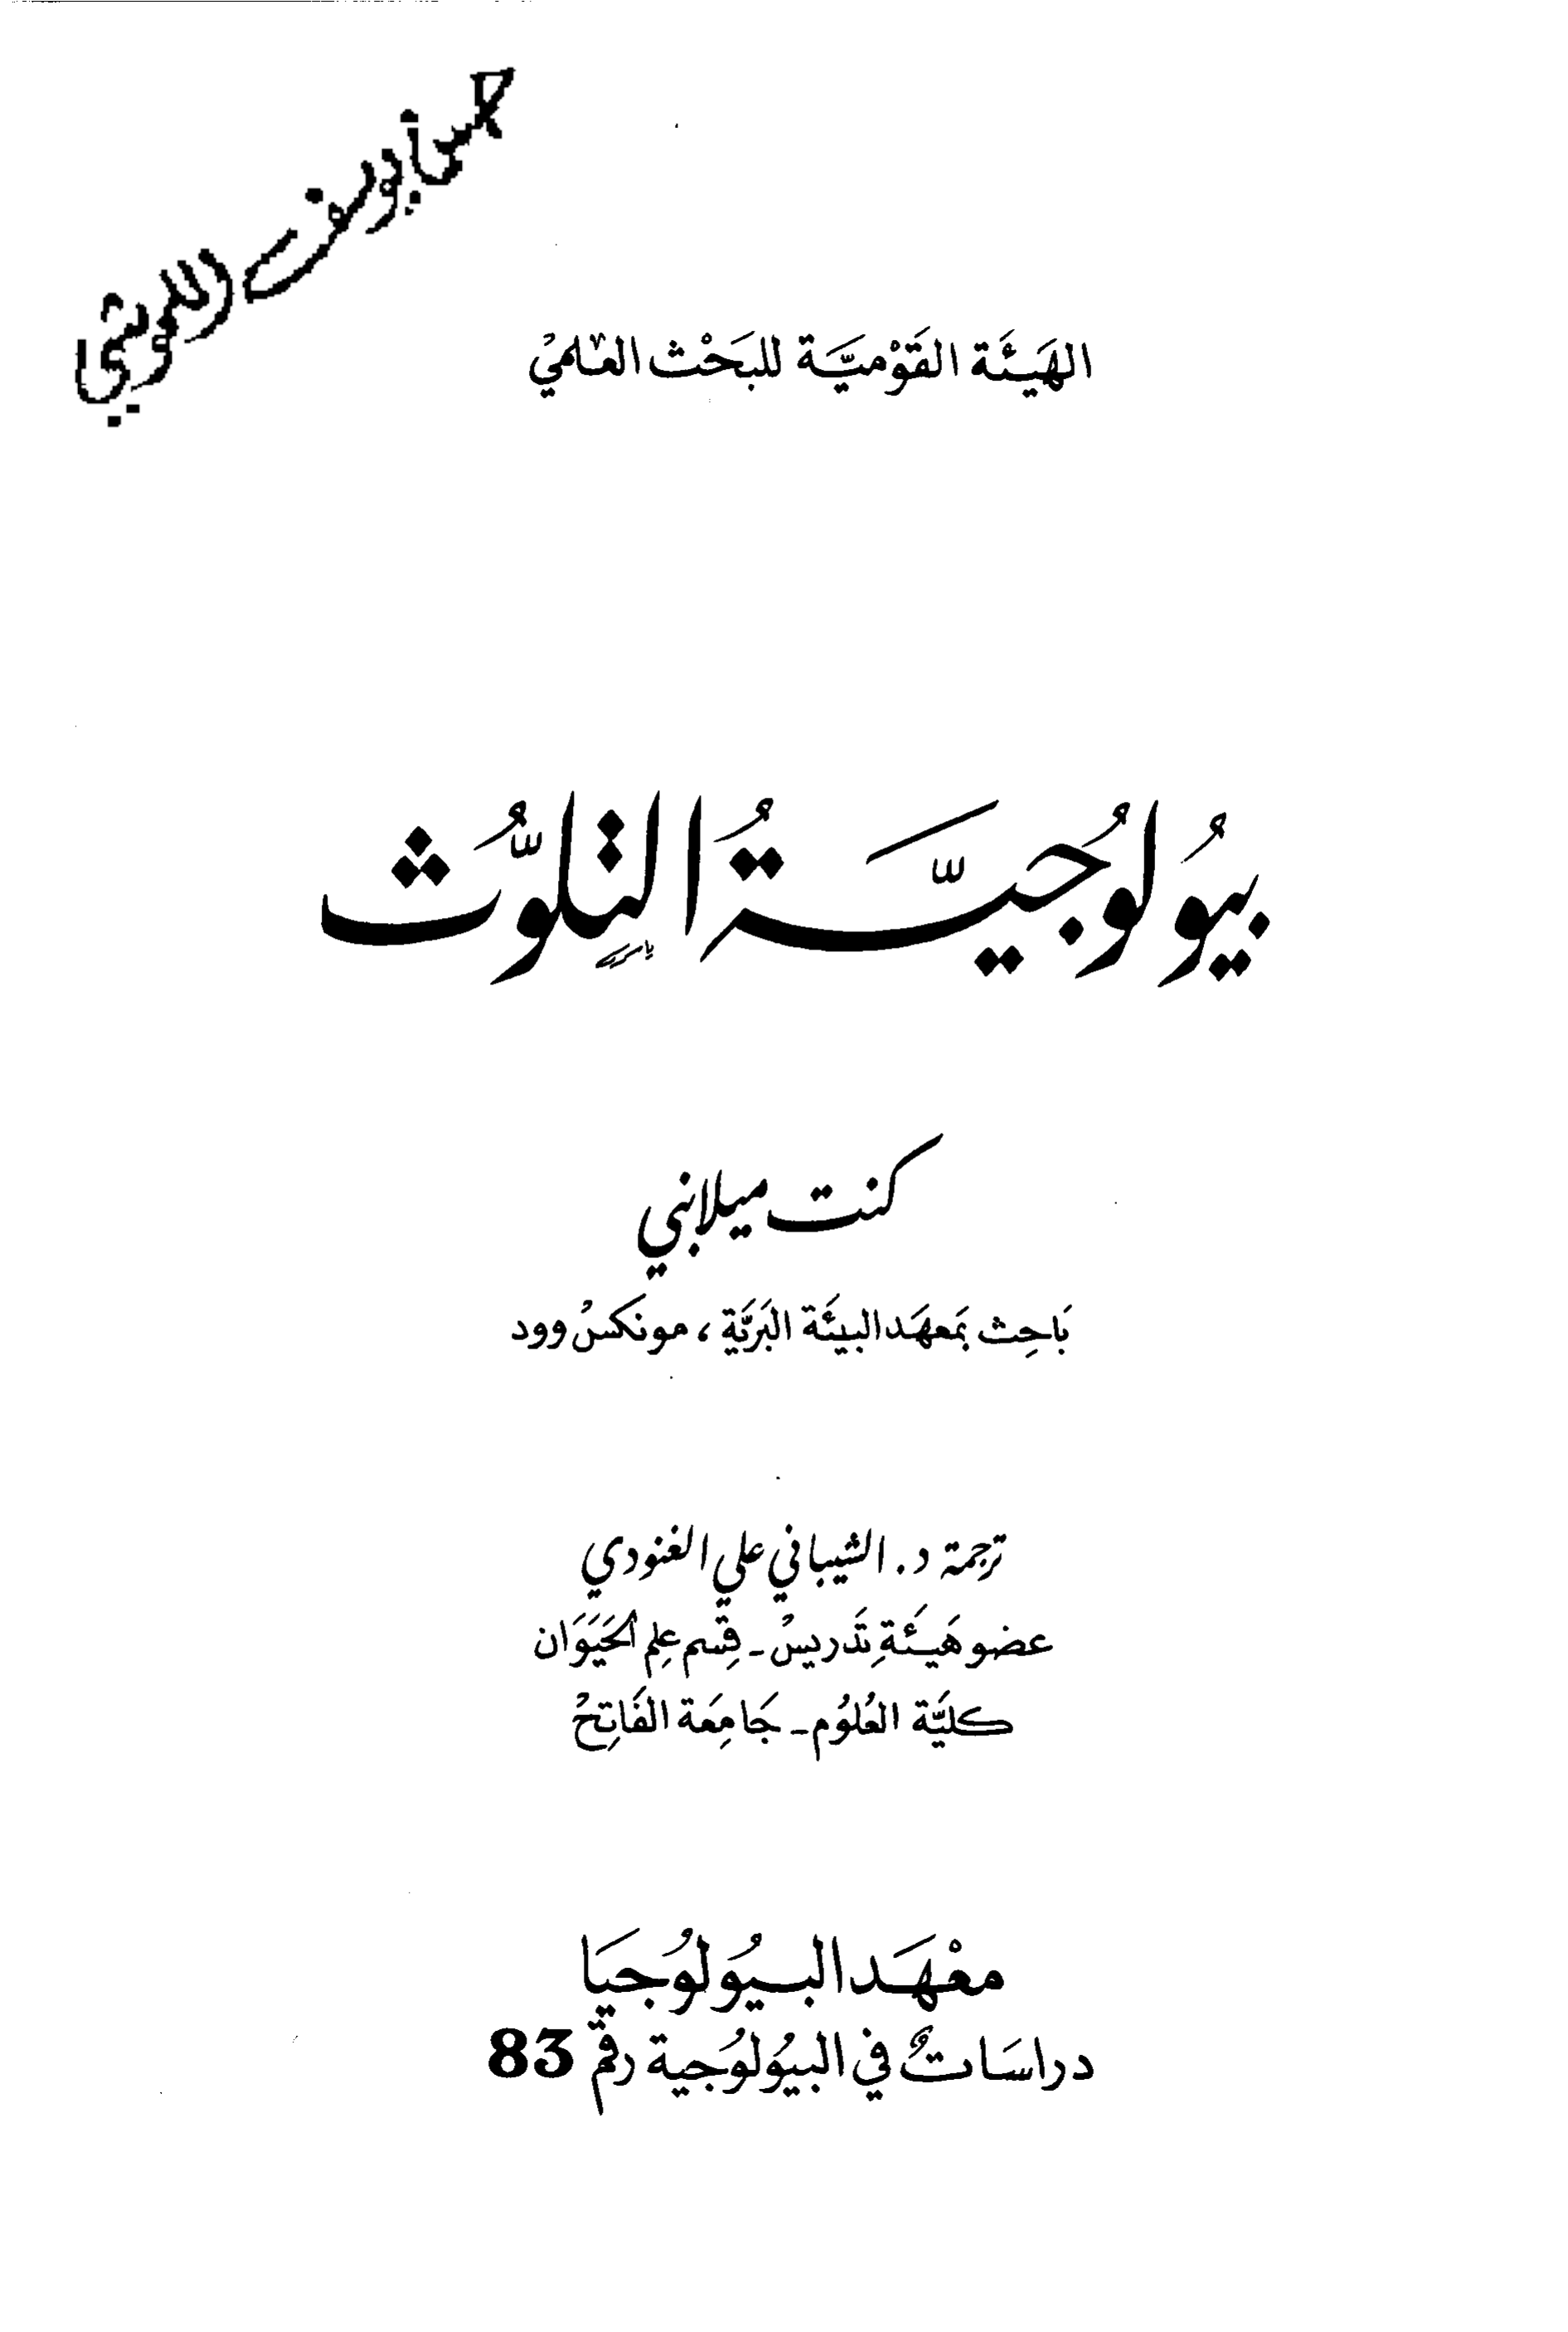 الهَيئَة القَوْميَّة للبَحْث العْلميْ
بيُولوُجيَّةُ التلوُّث
كنت ميلانبي
بَاحِث بمَعهَد البيئَة البَريَّة ، مونكسْ وود
ترجمة د. الشيباني علي الغنودي
عضو هَيئَةِ تَدريسْ - قِسم عِلم الحَيَوَان
كليَّة العُلوُم - جَامِعَة الفَاتِحْ
معْهَد البيُولوُجيَا
دراسَاتٌ في البيُولوُجية رقم 83